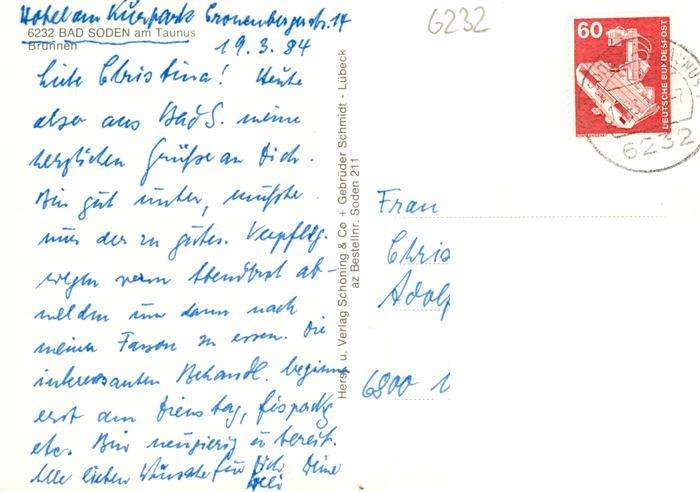 Hotel am Kurpark Cronenbergerstr. 14
6232 BAD SODEN am Taunus
Brunnen
19.3.84
Liebe Christina! Heute
also aus Bad S. meine
herzlichen Grüße an Dich.
Bin gut unter, mußte
nur der zu guten Verpflg.
wegen vom Abendbrot ab-
melden um dann nach
meiner Fasson zu essen. Die
interessanten Behandl. beginnen
erst am Dienstag,
etc. Bin neugierig u bereit.
Alle lieben Wünsche für Dich Deine
Hersg. u. Verlag Schöning & Co + Gebrüder Schmidt - Lübeck
az Bestellnr. Soden 211
6232
60
DEUTSCHE BUNDESPOST
6232
Frau
Chris
Adolp
6800